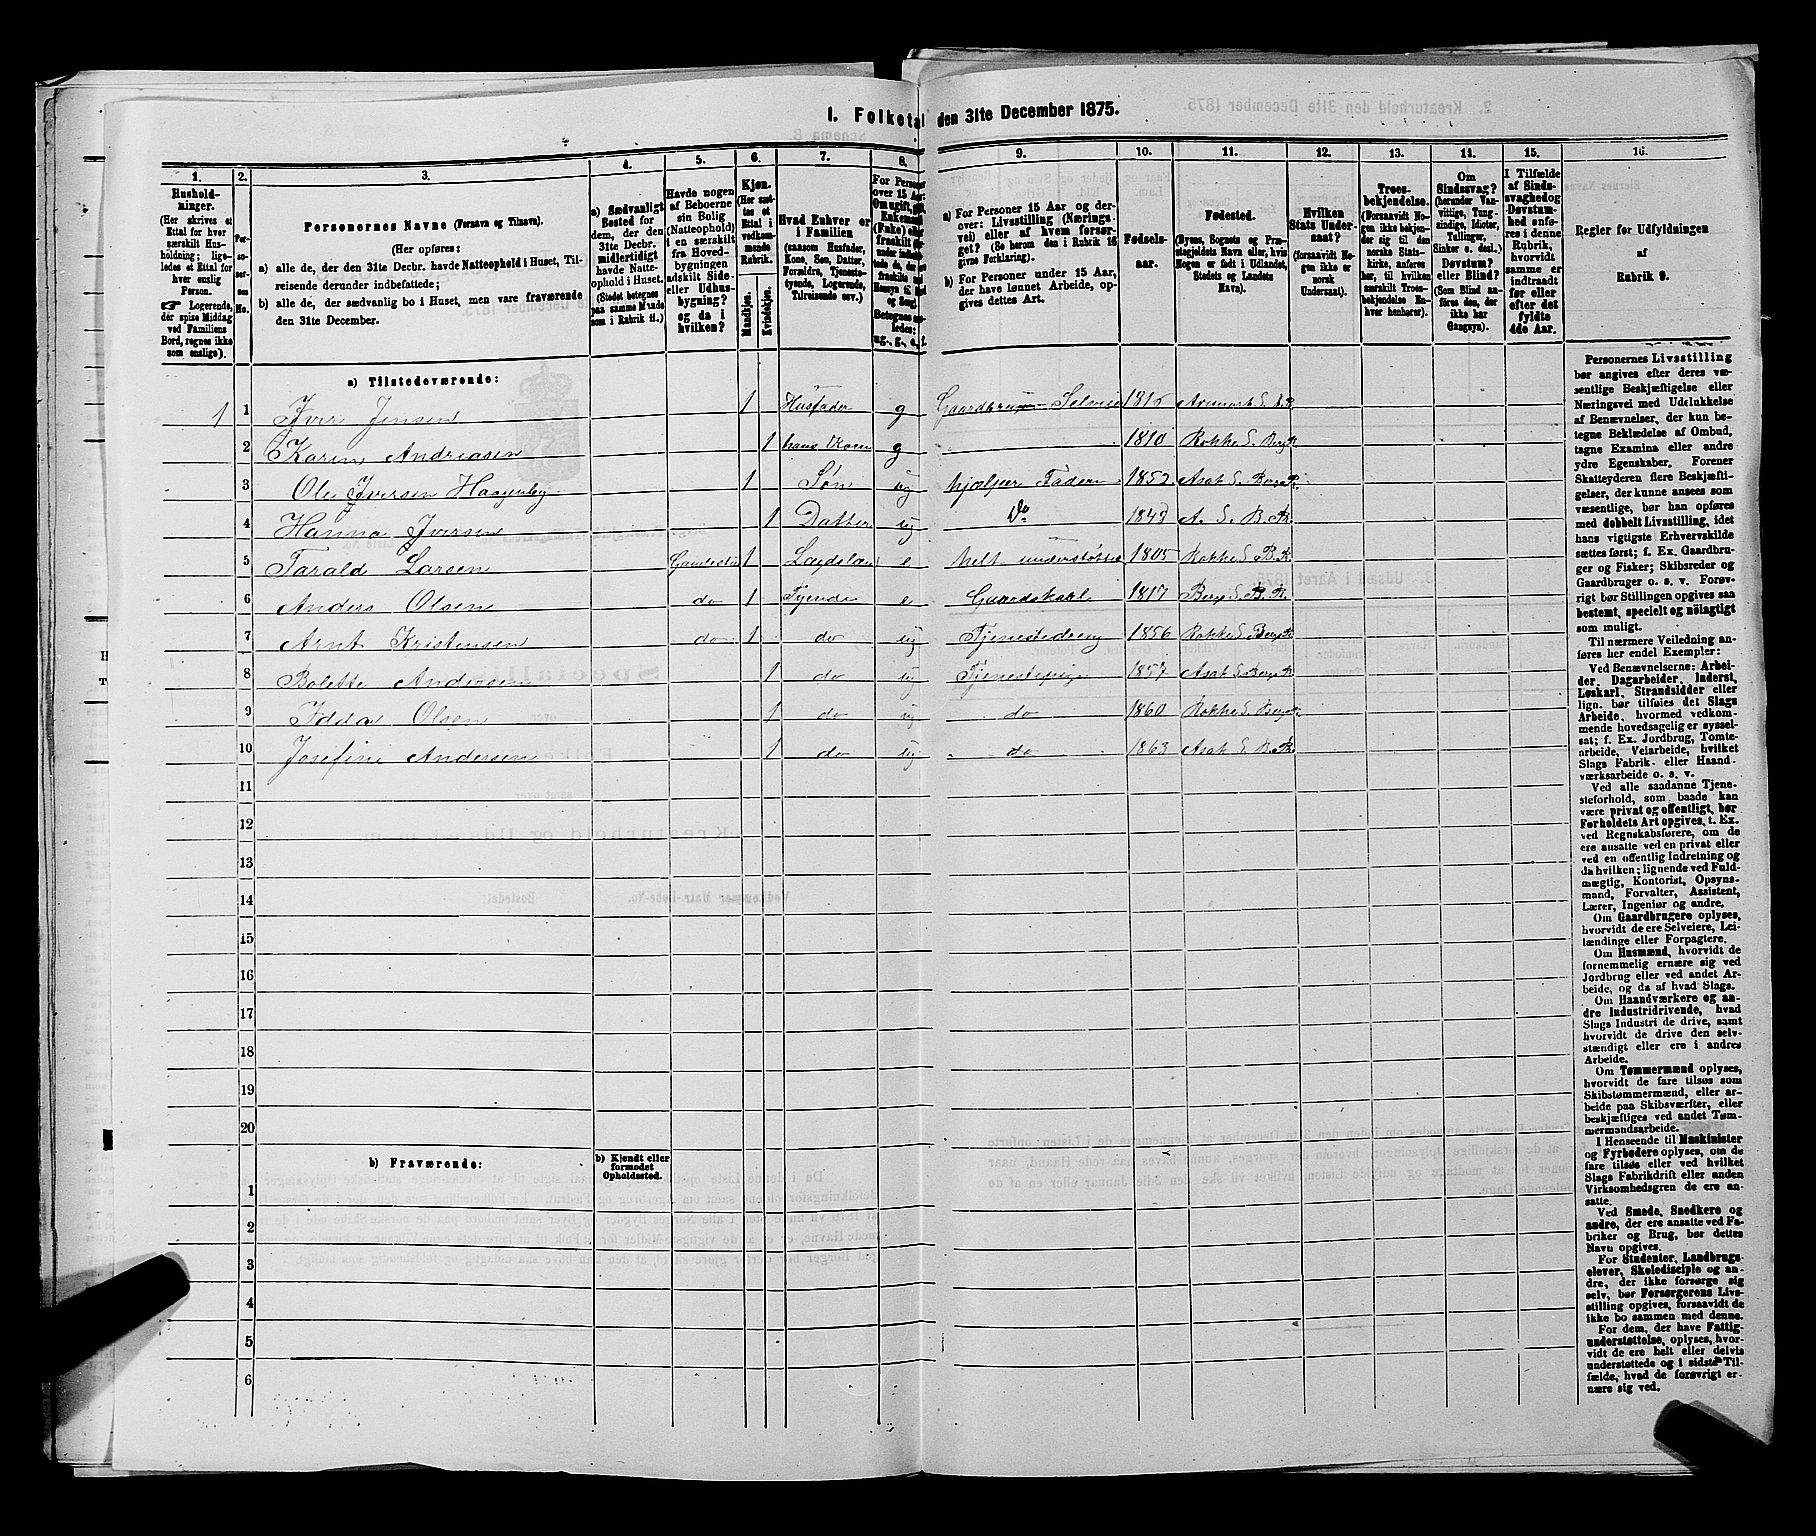 1. Folketal den 31te December 1875.
1.
2.
3.
4.
5.
6.
7.
8.
9.
10.
11.
12.
13.
14.
15.
16.
Hushold-
ninger.
(Her skrives et
Ettal for hver
særskilt Hus-
holdning; lige-
ledes et Ettal for
hver enslig
Person.
☞ Logerende,
der spise Middag
ved Familiens
Bord, regnes ikke
som enslige).
Per-
so-
ner-
nes
No.
Personernes Navne (Fornavn og Tilnavn).
(Her opføres:
a) alle de, der den 31te Decbr. havde Natteophold i Huset, Til-
reisende derunder indbefattede;
b) alle de, der sædvanlig bo i Huset, men vare fraværende
den 31te December.
a) Sædvanligt
Bosted for
dem, der den
31te Decbr.
midlertidigt
havde Natte-
ophold i Huset.
(Stedet betegnes
paa samme Maade
som i Rubrik 11.)
Havde nogen
af Beboerne
sin Bolig
(Natteophold)
i en særskilt
fra Hoved-
bygningen
adskilt Side-
eller Udhus-
bygning?
og da i
hvilken?
Kjøn.
(Her sæt-
tes et
Ettal i
vedkom-
mende
Rubrik.
Mandkjøn.
Kvindekjøn.
Hvad Enhver er
i Familien
(saasom Husfader,
Kone, Søn, Datter,
Forældre, Tjeneste-
tyende, Logerende,
Tilreisende osv.)
For Personer
over 15 Aar:
Om ugift, gift,
Enkemand
(Enke) eller
fraskilt
Betegnes saa-
ledes:
ug., g., e., f.
a) For Personer 15 Aar og der-
over: Livsstilling (Nærings-
vei) eller af hvem forsør-
get? (Se herom den i Rubrik 16
givne Forklaring).
b) For Personer under 15 Aar,
der have lønnet Arbeide, op-
gives dettes Art.
Fødsels-
aar.
Fødested.
(Byens, Sognets og Præ-
stegjeldets Navn eller, hvis
Nogen er født i Udlandet,
Stedets og Landets
Navn).
Hvilken
Stats Under-
saat?
(forsaavidt No-
gen ikke er
norsk
Undersaat).
Troes-
bekjendelse.
(Forsaavidt No-
gen ikke bekjen-
der sig til den
norske Stats-
kirke, anføres
her, til hvilken
særskilt Troes-
bekjendelse En-
hver henhører).
Om
Sindssvag?
(herunder Van-
vittige, Tung-
sindige, Idioter,
Tullinger,
Sinker o. desl.)
Døvstum?
eller Blind?
(Som Blind an-
føres den, der
ikke har
Gangsyn).
I Tilfælde
af Sinds-
svaghed og
Døvstum-
hed anfø-
res i denne
Rubrik,
hvorvidt
samme er
indtraadt
før eller
efter det
fyldte
4de Aar.
Regler for Udfyldningen
af
Rubrik 9.
a) Tilstedeværende:
1 1 Iver Jensen 1 Husfader g Gaardbruger Selveier 1816 Aremark S. A. P.
2 Karin Andreasen 1 hans Kone g 1810 Rokke S. Berg P.
3 Ole Iversen Haagenby 1 Søn ug hjælper Faderen 1852 Asak S. Berg P.
4 Hanna Iversen 1 Datter ug Do 1843 A. S. B. P.
5 Tarald Larsen 1 e helt understøttet 1805 Rokke S. B. P.
6 Anders Olsen do 1 Tyende e Gaardskarl 1817 Berg S. B. P.
7 Arnt Kristensen do 1 do ug Tjenestedreng 1856 Rokke S. Berg P.
8 Bolette Andersen 1 do ug Tjenestepige 1857 Asak S. Berg P.
9 Idda Olsen 1 do ug do 1860 Rokke S. Berg P.
10 Josefine Andersen 1 do ug do 1863 Asak S. B. P.
11
12
13
14
15
16
17
18
19
20
b) Fraværende:
b) Kjendt eller
formodet
Opholdssted.
1
2
3
4
5
6
Personernes Livsstilling
bør angives efter deres væ-
sentlige Beskjæftigelse eller
Næringsvei med Udelukkelse
af Benævnelser, der kun be-
tegne Beklædelse af Ombud,
tagne Examina eller andre
ydre Egenskaber. Forener
Skatteyderen flere Beskjæfti-
gelser, der kunne ansees som
væsentlige, bør han opføres
med dobbelt Livsstilling, idet
hans vigtigste Erhvervskilde
sættes først; f. Ex. Gaardbru-
ger og Fisker; Skibsreder og
Gaardbruger o. s. v. Forøv-
rigt bør Stillingen opgives saa
bestemt, specielt og nöiagtigt
som muligt.
Til nærmere Veiledning an-
føres her endel Exempler:
Ved Benævnelserne: Arbei-
der, Dagarbeider, Inderst,
Løskarl, Strandsidder eller
lign. bør tilføies det Slags
Arbeide, hvormed vedkom-
mende hovedsagelig er syssel-
sat; f. Ex. Jordbrug, Tomte-
arbeide, Veiarbeide, hvilket
Slags Fabrik- eller Haand-
værksarbeide o. s. v.
Ved alle saadanne Tjene-
steforhold, som baade kan
være privat og offentligt, bør
Forholdets Art opgives, t. Ex.
ved Regnskabsførere, om de
ere ansatte ved en privat eller
ved en offentlig Indretning og
da hvilken; lignende ved Fuld-
mægtig, Kontorist, Opsyns-
mand, Forvalter, Assistent,
Lærer, Ingeniør og andre.
Om Gaardbrugere oplyses,
hvorvidt de ere Selveiere, Lei-
lændinge eller Forpagtere.
Om Husmænd, hvorvidt de
fornemmelig ernære sig ved
Jordbrug eller ved andet Ar-
beide, og da af hvad Slags.
Om Haandværkere og an-
dre Industridrivende, hvad
Slags Industri de drive, samt
hvorvidt de drive den selv-
stændigt eller ere i andres
Arbeide.
Om Tømmermænd oplyses,
hvorvidt de fare tilsøs som
Skibstømmermænd, eller ar-
beide paa Skibsværfter, eller
beskjæftiges ved andet Tøm-
mermandsarbeide.
I Henseende til Maskinister
og Fyrbødere oplyses, om de
fare tilsøs eller ved hvilket
Slags Fabrikdrift eller anden
Virksomhedsgren de ere an-
satte.
Ved Smede, Snedkere og
andre, der ere ansatte ved Fa-
briker og Brug, bør dettes
Navn opgives.
For Studenter, Landbrugs-
elever, Skoledisciple og an-
dre, der ikke forsørge sig
selv, bør Forsørgerens Livs-
stilling opgives, forsaavidt de
ikke bo sammen med denne.
For dem, der have Fattig-
understøttelse, oplyses, hvor-
vidt de ere helt eller delvis
understøttede og i sidste Til-
fælde, hvad de forøvrigt er-
nære sig ved.